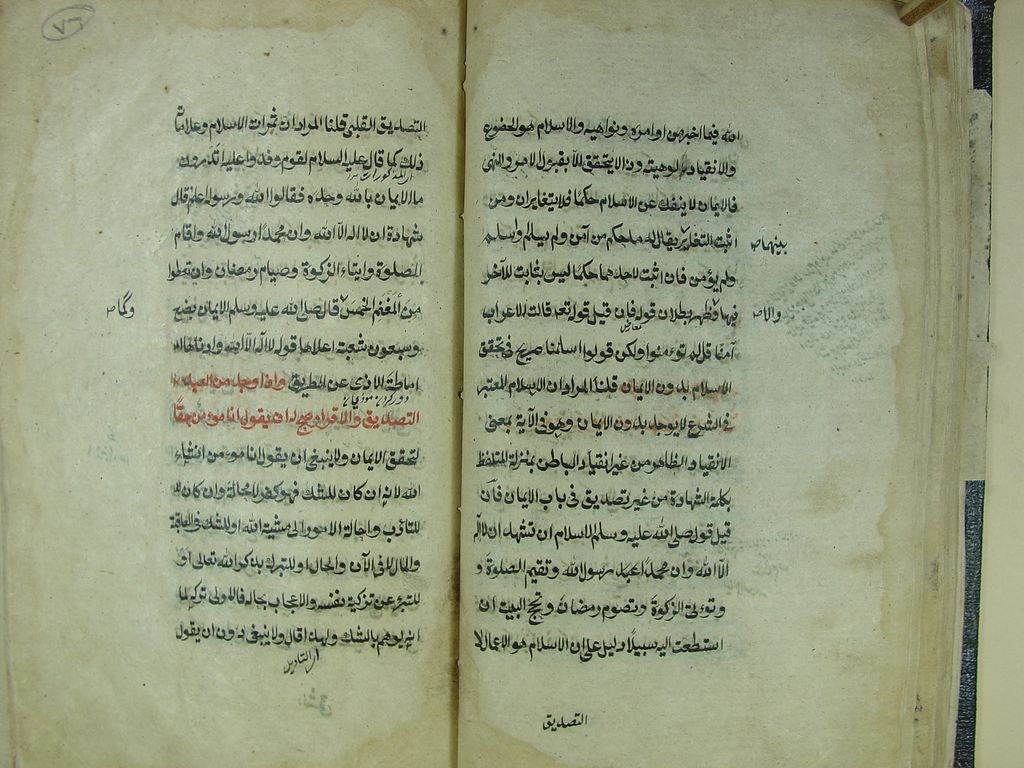 الله فيما اخبر من اوامره ونواهيه والاسلام هو الخضوع
والانقياد لالوهيته وذا لا يتحقق الا بقبول الامر والنهى
فالايمان لا ينفك عن الاسلام حكما فلا يتغايران ومن
اثبت التغاير يقال له ما حكم من آمن ولم يسلم او سلم
بينهما صح
ولم يؤمن فان اثبت لاحدهما حكما ليس بثابت للآخر
فيها فظهر بطلان قوله فان قيل قوله تعه قالت الاعراب
والا صح
آمنا قل لم تؤمنوا ولكن قولوا اسلمنا صريح في تحقق
الاسلام بدون الايمان قلنا المراد ان الاسلام المعتبر
في الشرع لا يوجد بدون الايمان وهو في الآية بمعنى
الانقياد الظاهر من غير انقياد الباطن بمنزلة المتلفظ
بكلمة الشهادة من غير تصديق في باب الايمان فان
قيل قوله صلى الله عليه وسلم الاسلام ان تشهد ان لا اله
الا الله وان محمدا عبده رسول الله وتقيم الصلوة و
وتؤتى الزكوة وتصوم رمضان وتحج البيت ان
استطعت اليه سبيلا دليل على ان الاسلام هو الاعمال لا
التصديق
٧٦
التصديق القلبى قلنا المراد ان ثمرات الاسلام وعلاماته
ذلك كما قال عليه السلام لقوم وفدوا عليه اتدرون
ما الايمان بالله وحده فقالوا الله ورسوله اعلم قال
شهادة ان لا اله الا الله وان محمدا رسول الله واقام
الصلوة وايتاء الزكوة وصيام رمضان وان تعطوا
من المغنم الخمس قال صلى الله عليه وسلم الايمان بضع
وكما صح
وسبعون شعبة اعلاها قول لا اله الا الله وادناها
اماطة الاذى عن الطريق واذا وجد من العبد
التصديق والاقرار صح له ان يقول انا مؤمن حقا
لتحقق الايمان ولا ينبغى ان يقول انا مؤمن انشاء
الله لانه ان كان للشك فهو كفر لا محالة وان كان
للتأدب واحالة الامور الى مشية الله او للشك في العاقبة
والمآل لا في الآن والحال او للتبرك بذكر الله تعالى او
للتبرئ عن تزكية نفسه والاعجاب بحاله فالاولى تركه لما
انه يوهم بالشك ولهذا قال ولا ينبغى دون ان يقول